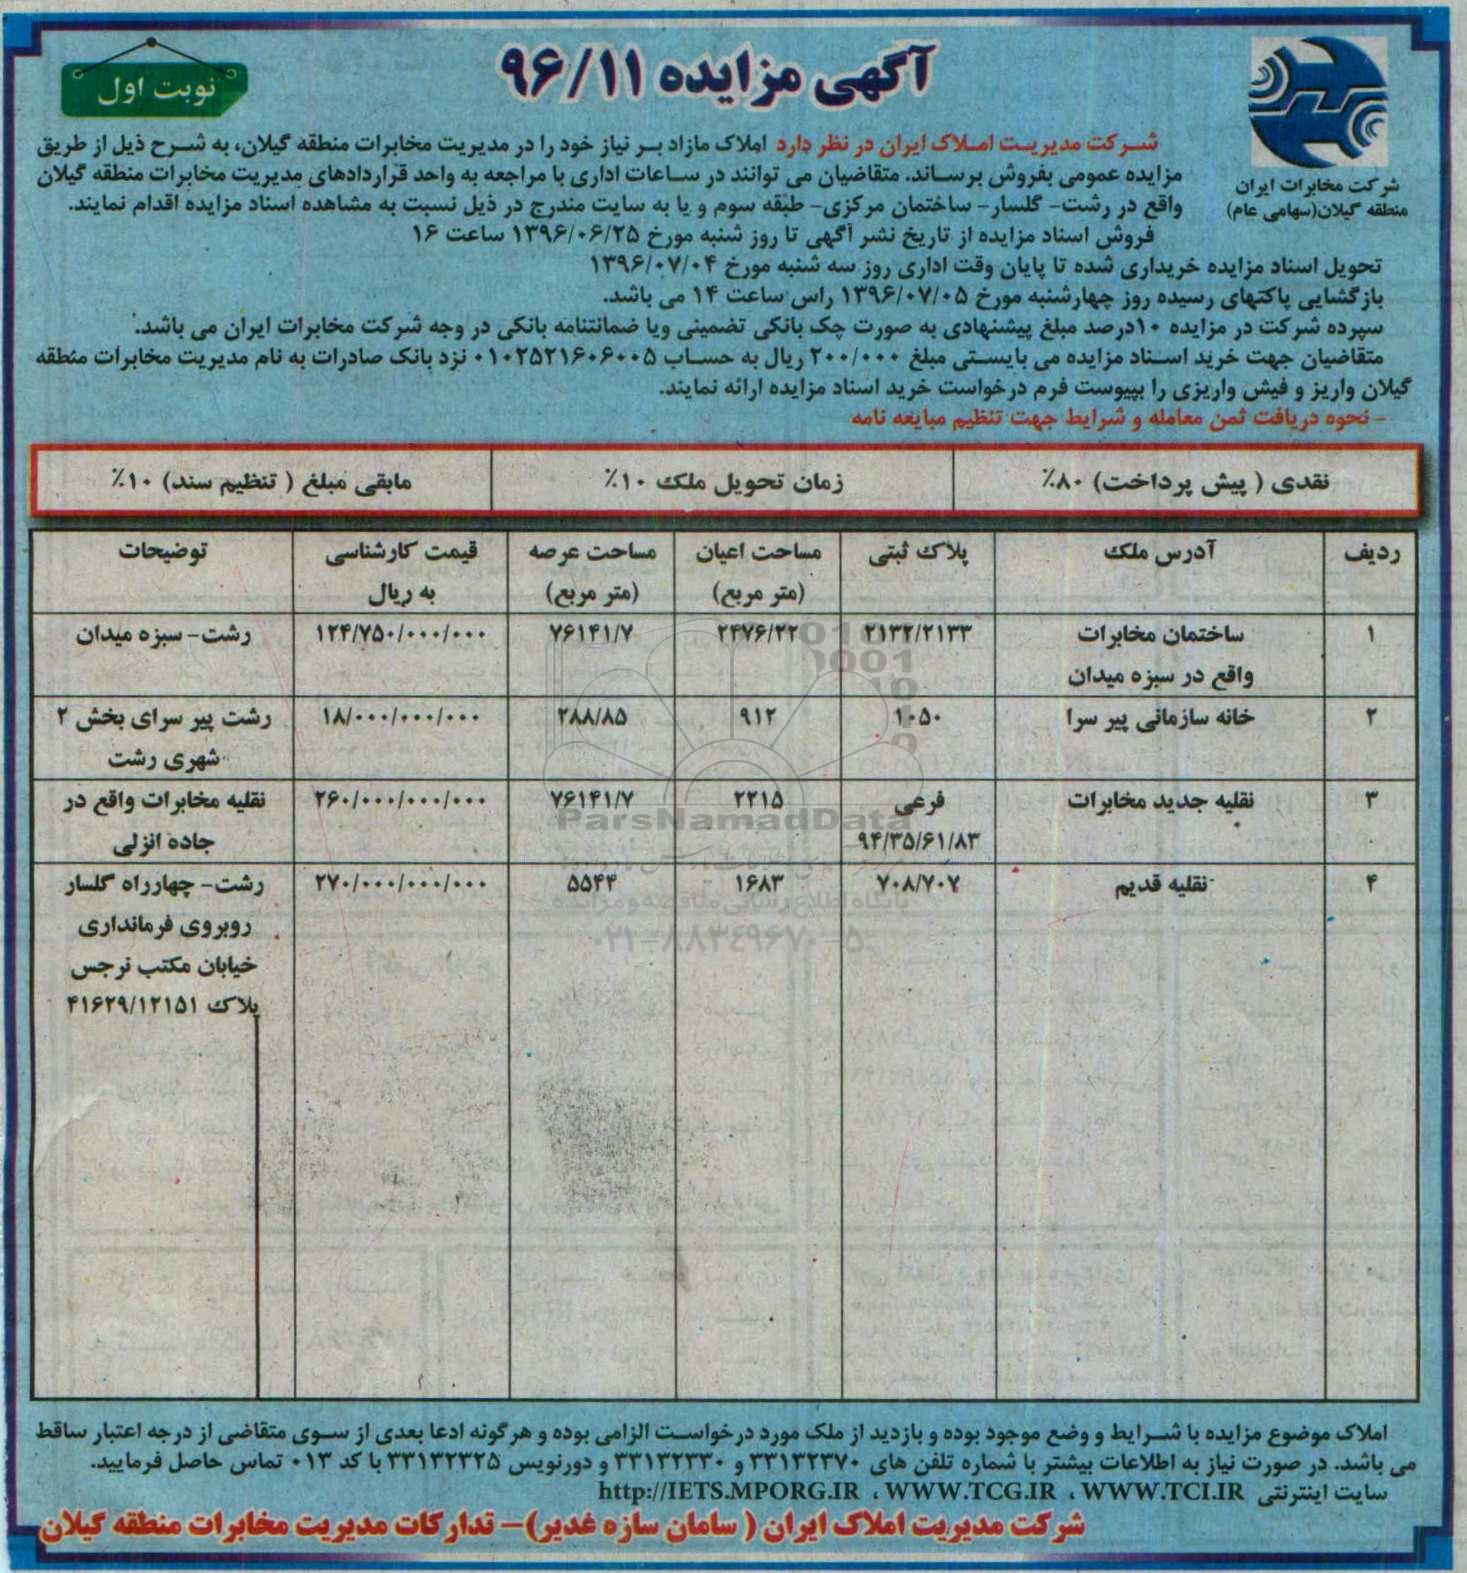 آگهی مزایده ۹۶/۱۱
نوبت اول
شرکت مخابرات ایران
منطقه گیلان(سهامی عام)
شرکت مدیریت املاک ایران در نظر دارد املاک مازاد بر نیاز خود را در مدیریت مخابرات منطقه گیلان، به شرح ذیل از طریق
مزایده عمومی بفروش برساند. متقاضیان می توانند در ساعات اداری با مراجعه به واحد قراردادهای مدیریت مخابرات منطقه گیلان
واقع در رشت- گلسار- ساختمان مرکزی- طبقه سوم و یا به سایت مندرج در ذیل نسبت به مشاهده اسناد مزایده اقدام نمایند.
فروش اسناد مزایده از تاریخ نشر آگهی تا روز شنبه مورخ ۱۳۹۶/۰۶/۲۵ ساعت ۱۶
تحویل اسناد مزایده خریداری شده تا پایان وقت اداری روز سه شنبه مورخ ۱۳۹۶/۰۷/۰۴
بازگشایی پاکتهای رسیده روز چهارشنبه مورخ ۱۳۹۶/۰۷/۰۵ راس ساعت ۱۴ می باشد.
سپرده شرکت در مزایده ۱۰درصد مبلغ پیشنهادی به صورت چک بانکی تضمینی ویا ضمانتنامه بانکی در وجه شرکت مخابرات ایران می باشد.
متقاضیان جهت خرید اسناد مزایده می بایستی مبلغ ۲۰۰/۰۰۰ ریال به حساب ۰۱۰۲۵۲۱۶۰۶۰۰۵ نزد بانک صادرات به نام مدیریت مخابرات منطقه
گیلان واریز و فیش واریزی را بپیوست فرم درخواست خرید اسناد مزایده ارائه نمایند.
- نحوه دریافت ثمن معامله و شرایط جهت تنظیم مبایعه نامه
نقدی ( پیش پرداخت) ۸۰٪ زمان تحویل ملک ۱۰٪ مابقی مبلغ ( تنظیم سند) ۱۰٪
ردیف آدرس ملک پلاک ثبتی مساحت اعیان مساحت عرصه قیمت کارشناسی توضیحات
(متر مربع) (متر مربع) به ریال
۱ ساختمان مخابرات ۲۱۳۲/۲۱۳۳ ۲۴۷۶/۲۲ ۷۶۱۴۱/۷ ۱۲۴/۷۵۰/۰۰۰/۰۰۰ رشت- سبزه میدان
واقع در سبزه میدان
۲ خانه سازمانی پیر سرا ۱۰۵۰ ۹۱۲ ۲۸۸/۸۵ ۱۸/۰۰۰/۰۰۰/۰۰۰ رشت پیر سرای بخش ۲
شهری رشت
۳ نقلیه جدید مخابرات فرعی ۲۲۱۵ ۷۶۱۴۱/۷ ۲۶۰/۰۰۰/۰۰۰/۰۰۰ نقلیه مخابرات واقع در
۹۴/۳۵/۶۱/۸۳ جاده انزلی
۴ نقلیه قدیم ۷۰۸/۷۰۷ ۱۶۸۳ ۵۵۴۴ ۲۷۰/۰۰۰/۰۰۰/۰۰۰ رشت- چهارراه گلسار
روبروی فرمانداری
خیابان مکتب نرجس
پلاک ۴۱۶۲۹/۱۲۱۵۱
ParsNamadData
پایگاه اطلاع رسانی مناقصه و مزایده
۰۲۱-۸۸۳۴۹۶۷۰-۵
املاک موضوع مزایده با شرایط و وضع موجود بوده و بازدید از ملک مورد درخواست الزامی بوده و هرگونه ادعا بعدی از سوی متقاضی از درجه اعتبار ساقط
می باشد. در صورت نیاز به اطلاعات بیشتر با شماره تلفن های ۳۳۱۳۲۳۷۰ و ۳۳۱۳۲۳۳۰ و دورنویس ۳۳۱۳۲۳۲۵ با کد ۰۱۳ تماس حاصل فرمایید.
سایت اینترنتی http://IETS.MPORG.IR ، WWW.TCG.IR ، WWW.TCI.IR
شرکت مدیریت املاک ایران ( سامان سازه غدیر)- تدارکات مدیریت مخابرات منطقه گیلان